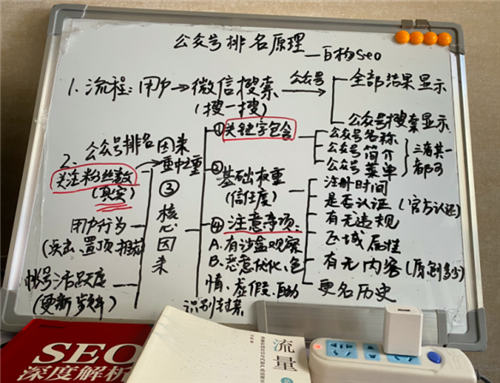 公众号排名原理—百构seo
1.流程:用户→微信搜索 公众号 全部结果显示
(搜一搜)
公众号搜索显示
①关键字包含
公众号名称
公众号简介
公众号菜单
三者其一
都可
2.公众号排名因素
重中之重
关注粉丝数
(真实)
③核心因素
②
基础权重
(信任度)
注册时间
是否认证(官方认证)
有无违规
飞域属性
有无内容
更名历史
用户行为
帐号活跃度
(更新频率)
④注意事项
A.有涉
B.恶意优化、色
情、虚假、
识别封杀
SEO
深度解析
流量